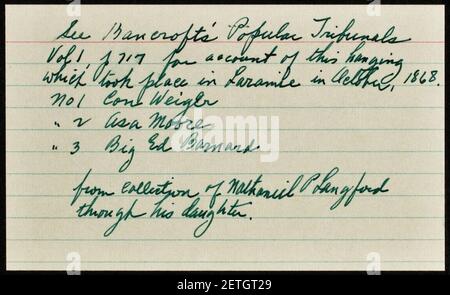 See Bancroft's Popular Tribunals
Vol 1, p 717 for account of this hanging
which took place in Laramie in October, 1868.
No 1 Con Weiger
" 2 Asa Moore
" 3 Big Ed Barnard
from collection of Nathaniel P Langford
through his daughter.
alamy
Image ID: 2ETGT29
www.alamy.com